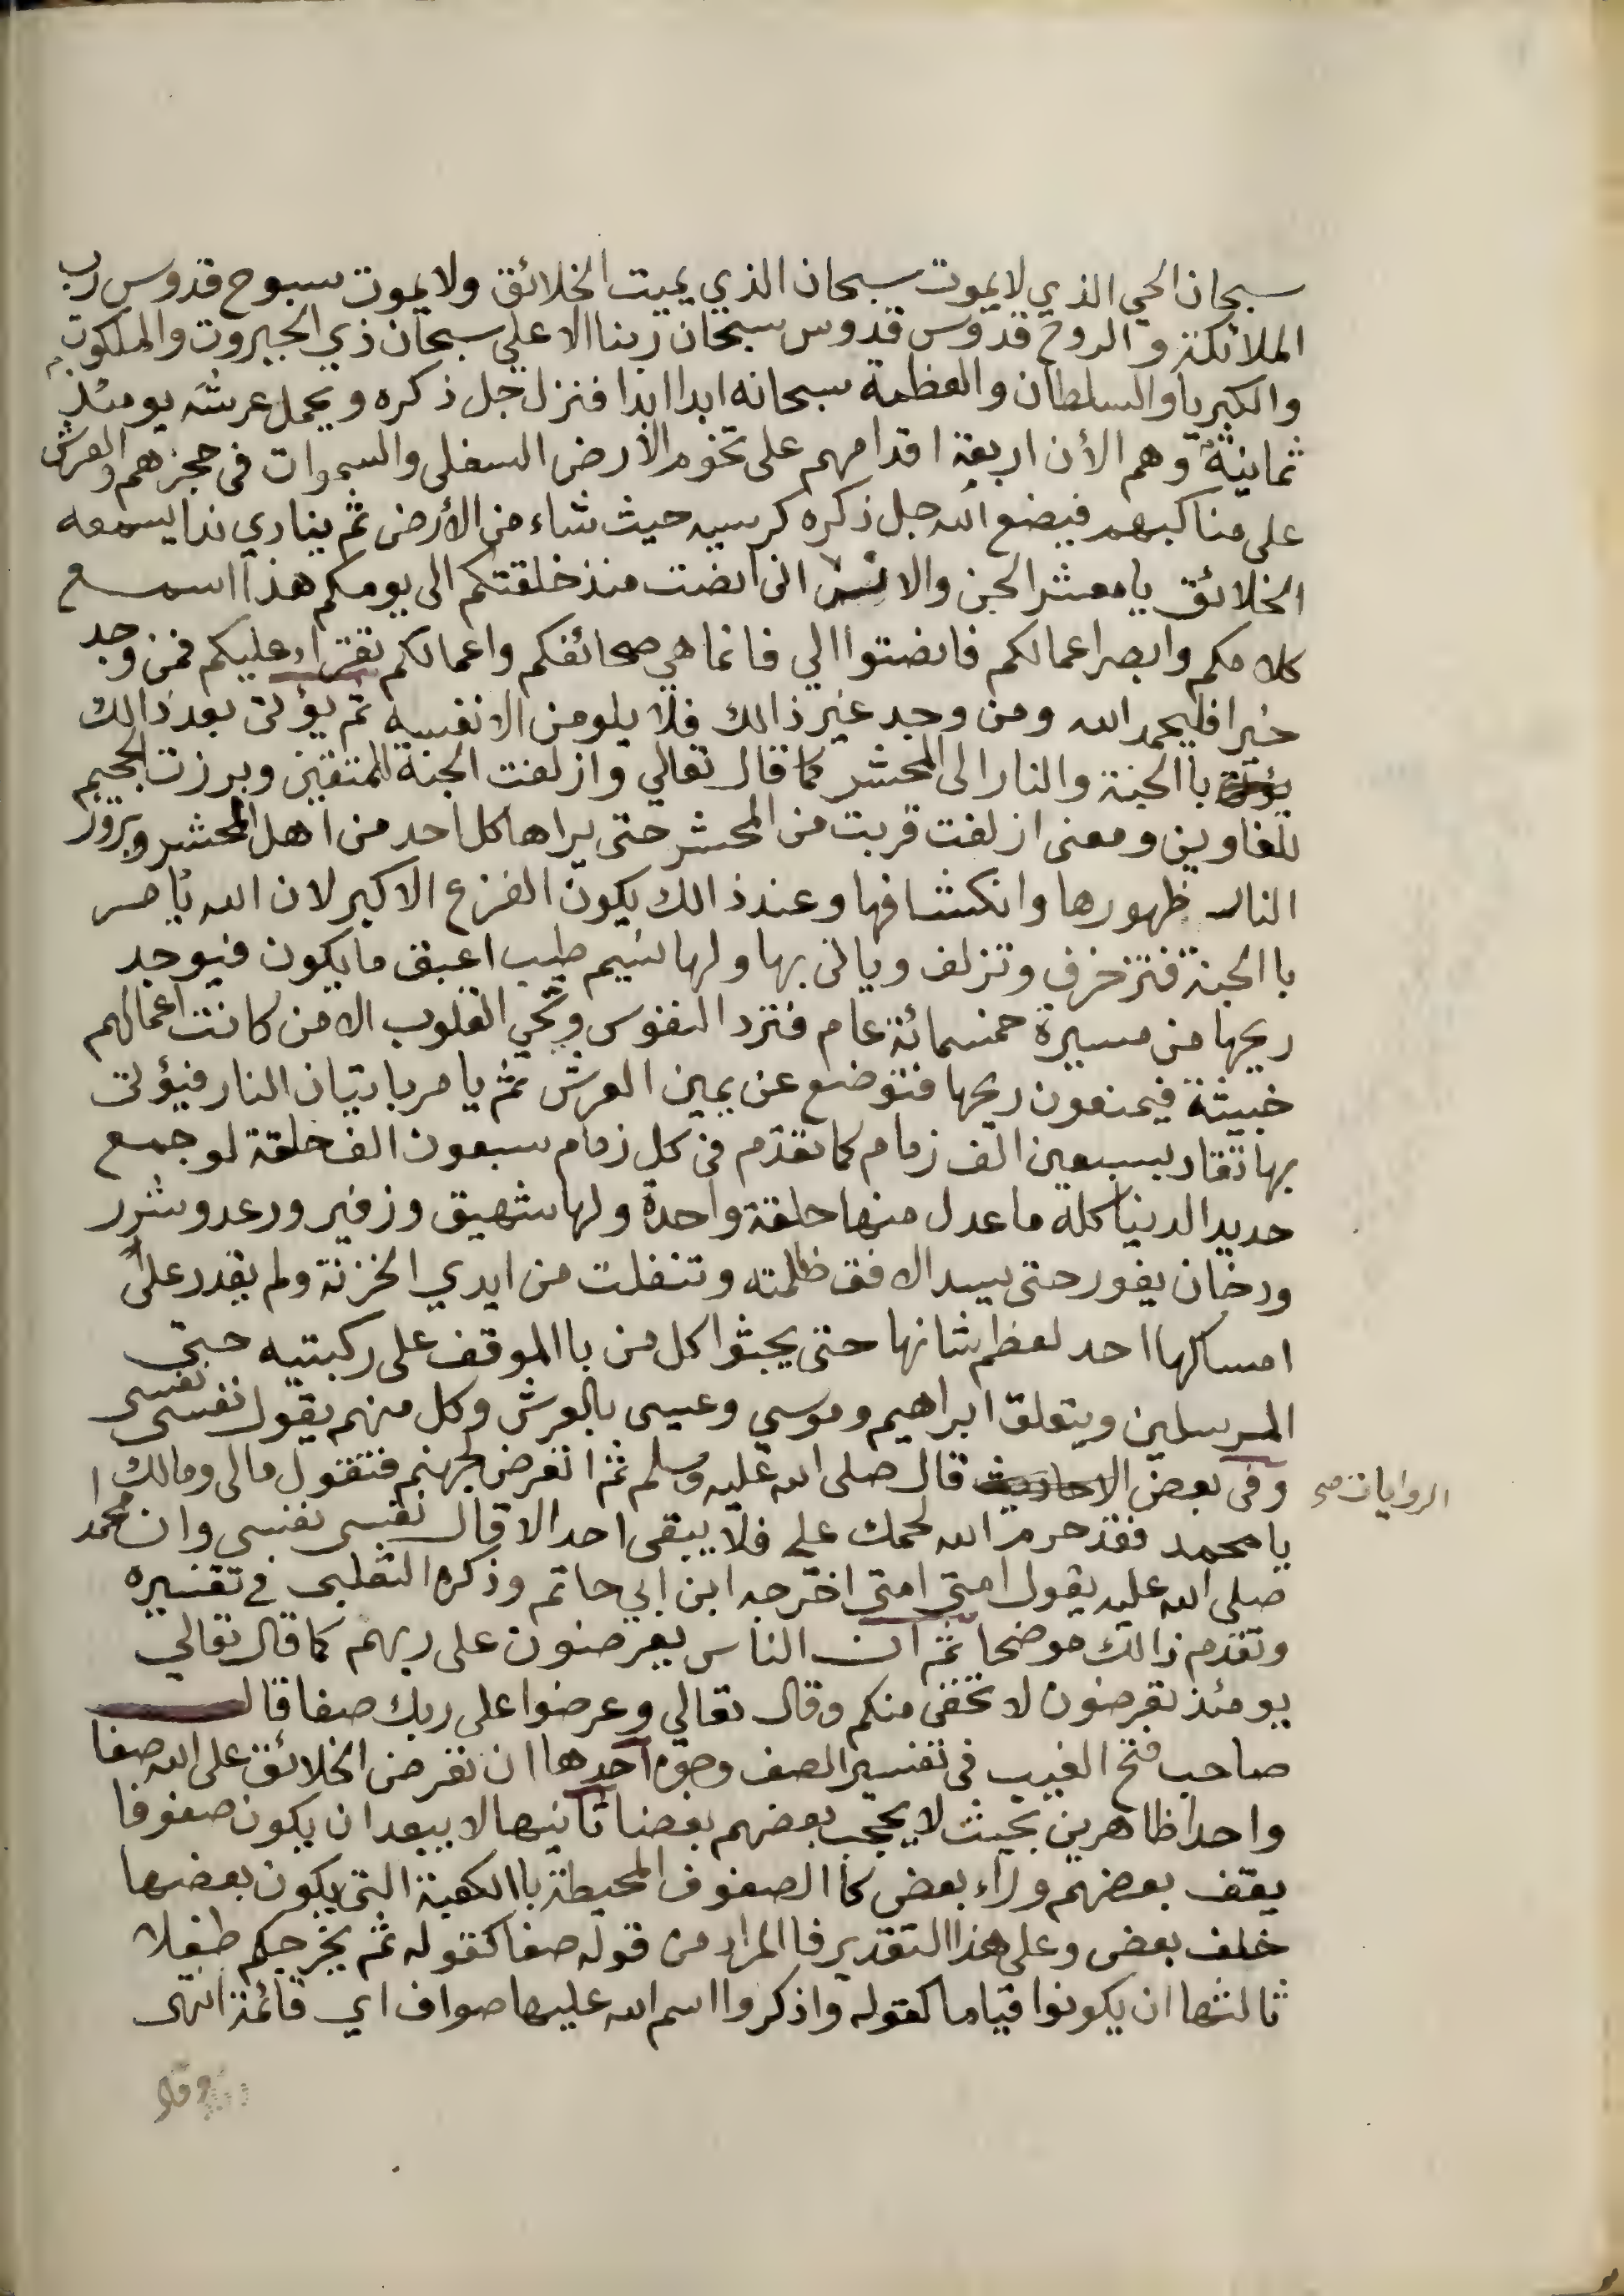 سبحان الحي الذي لا يموت سبحان الذي يميت الخلائق ولا يموت سبوح قدوس رب
الملائكة والروح قدوس قدوس سبحان ربنا الاعلي سبحان ذي الجبروت والملكوت
والكبريا والسلطان والعظمة سبحانه ابدا ابدا فنزل جل ذكره ويحمل عرشه يومئذ
ثمانية وهم الأن اربعة اقدامهم على تخوم الأرض السفلى والسموات في حجزهم والعرش
على مناكبهم فيضع الله جل ذكره كرسيه حيث شاء من الأرض ثم ينادي ندا يسمعه
الخلائق يا معشر الجن والانس اني انصت منذ خلقتكم الى يومكم هذا اسمع
كلامكم وابصر اعمالكم فانصتوا الي فانما هي صحائفكم واعمالكم تقراء عليكم فمن وجد
خيرا فليحمد الله ومن وجد غير ذالك فلا يلومن الا نفسه ثم يؤتى بعد ذالك
باالجنة والنار الى المحشر كما قال تعالي وازلفت الجنة للمتقين وبرزت الجحيم
للغاوين ومعنى ازلفت قربت من المحشر حتى يراها كل احد من اهل المحشر وبروز
النار ظهورها وانكشافها وعند ذالك يكون الفزع الاكبر لان الله يأمر
باالجنة فتزخرف وتزلف وياتى بها ولها نسيم طيب اعبق ما يكون فيوجد
ريحها من مسيرة خمسمائة عام فترد النفوس وتحي القلوب الا من كانت اعمالهم
خبيثة فيمنعون ريحها فتوضع عن يمين العرش ثم يامر باتيان النار فيؤتى
بها تقاد بسبعين الف زمام كما تقدم في كل زمام سبعون الف حلقة لو جمع
حديد الدنيا كله ما عدل منها حلقة واحدة ولها شهيق وزفير ورعد وشرر
ودخان يفور حتى يسد الافق ظلمته وتنفلت من ايدي الخزنة ولم يقدر على
امساكها احد لعظم شانها حتى يجثوا كل من باالموقف على ركبتيه حتى
المرسلين ويتعلق ابراهيم وموسي وعيسى بالعرش وكل منهم يقول نفسى نفسى
وفى بعض الاحاديث قال صلى الله عليه وسلم ثم اتعرض لجهنم فتقول مالى ومالك
الروايات صح
يا محمد فقد حرم الله لحمك على فلا يبقى احد الا قال نفسى نفسى وان محمدا
صلى الله عليه يقول امتى امتى اخرجه ابن ابي حاتم وذكره الثعلبى في تفسيره
وتقدم ذالك موضحا ثم ان الناس يعرضون على ربهم كما قال تعالي
يومئذ تعرضون لا تخفى منكم وقال تعالي وعرضوا على ربك صفا قال
صاحب فتح الغيب في تفسير الصف وجوه احدها ان تعرض الخلائق على الله صفا
واحدا ظاهرين بحيث لا يحجب بعضهم بعضا ثانيها لا يبعد ان يكون صفوفا
يقف بعضهم وراء بعض كاالصفوف المحيطة باالكعبة التى يكون بعضها
خلف بعض وعلى هذا التقدير فاالمراد من قوله صفا كقوله ثم يخرجكم طفلا
ثالثها ان يكونوا قياما كقوله واذكروا اسم الله عليها صواف اي قائمة انتهى